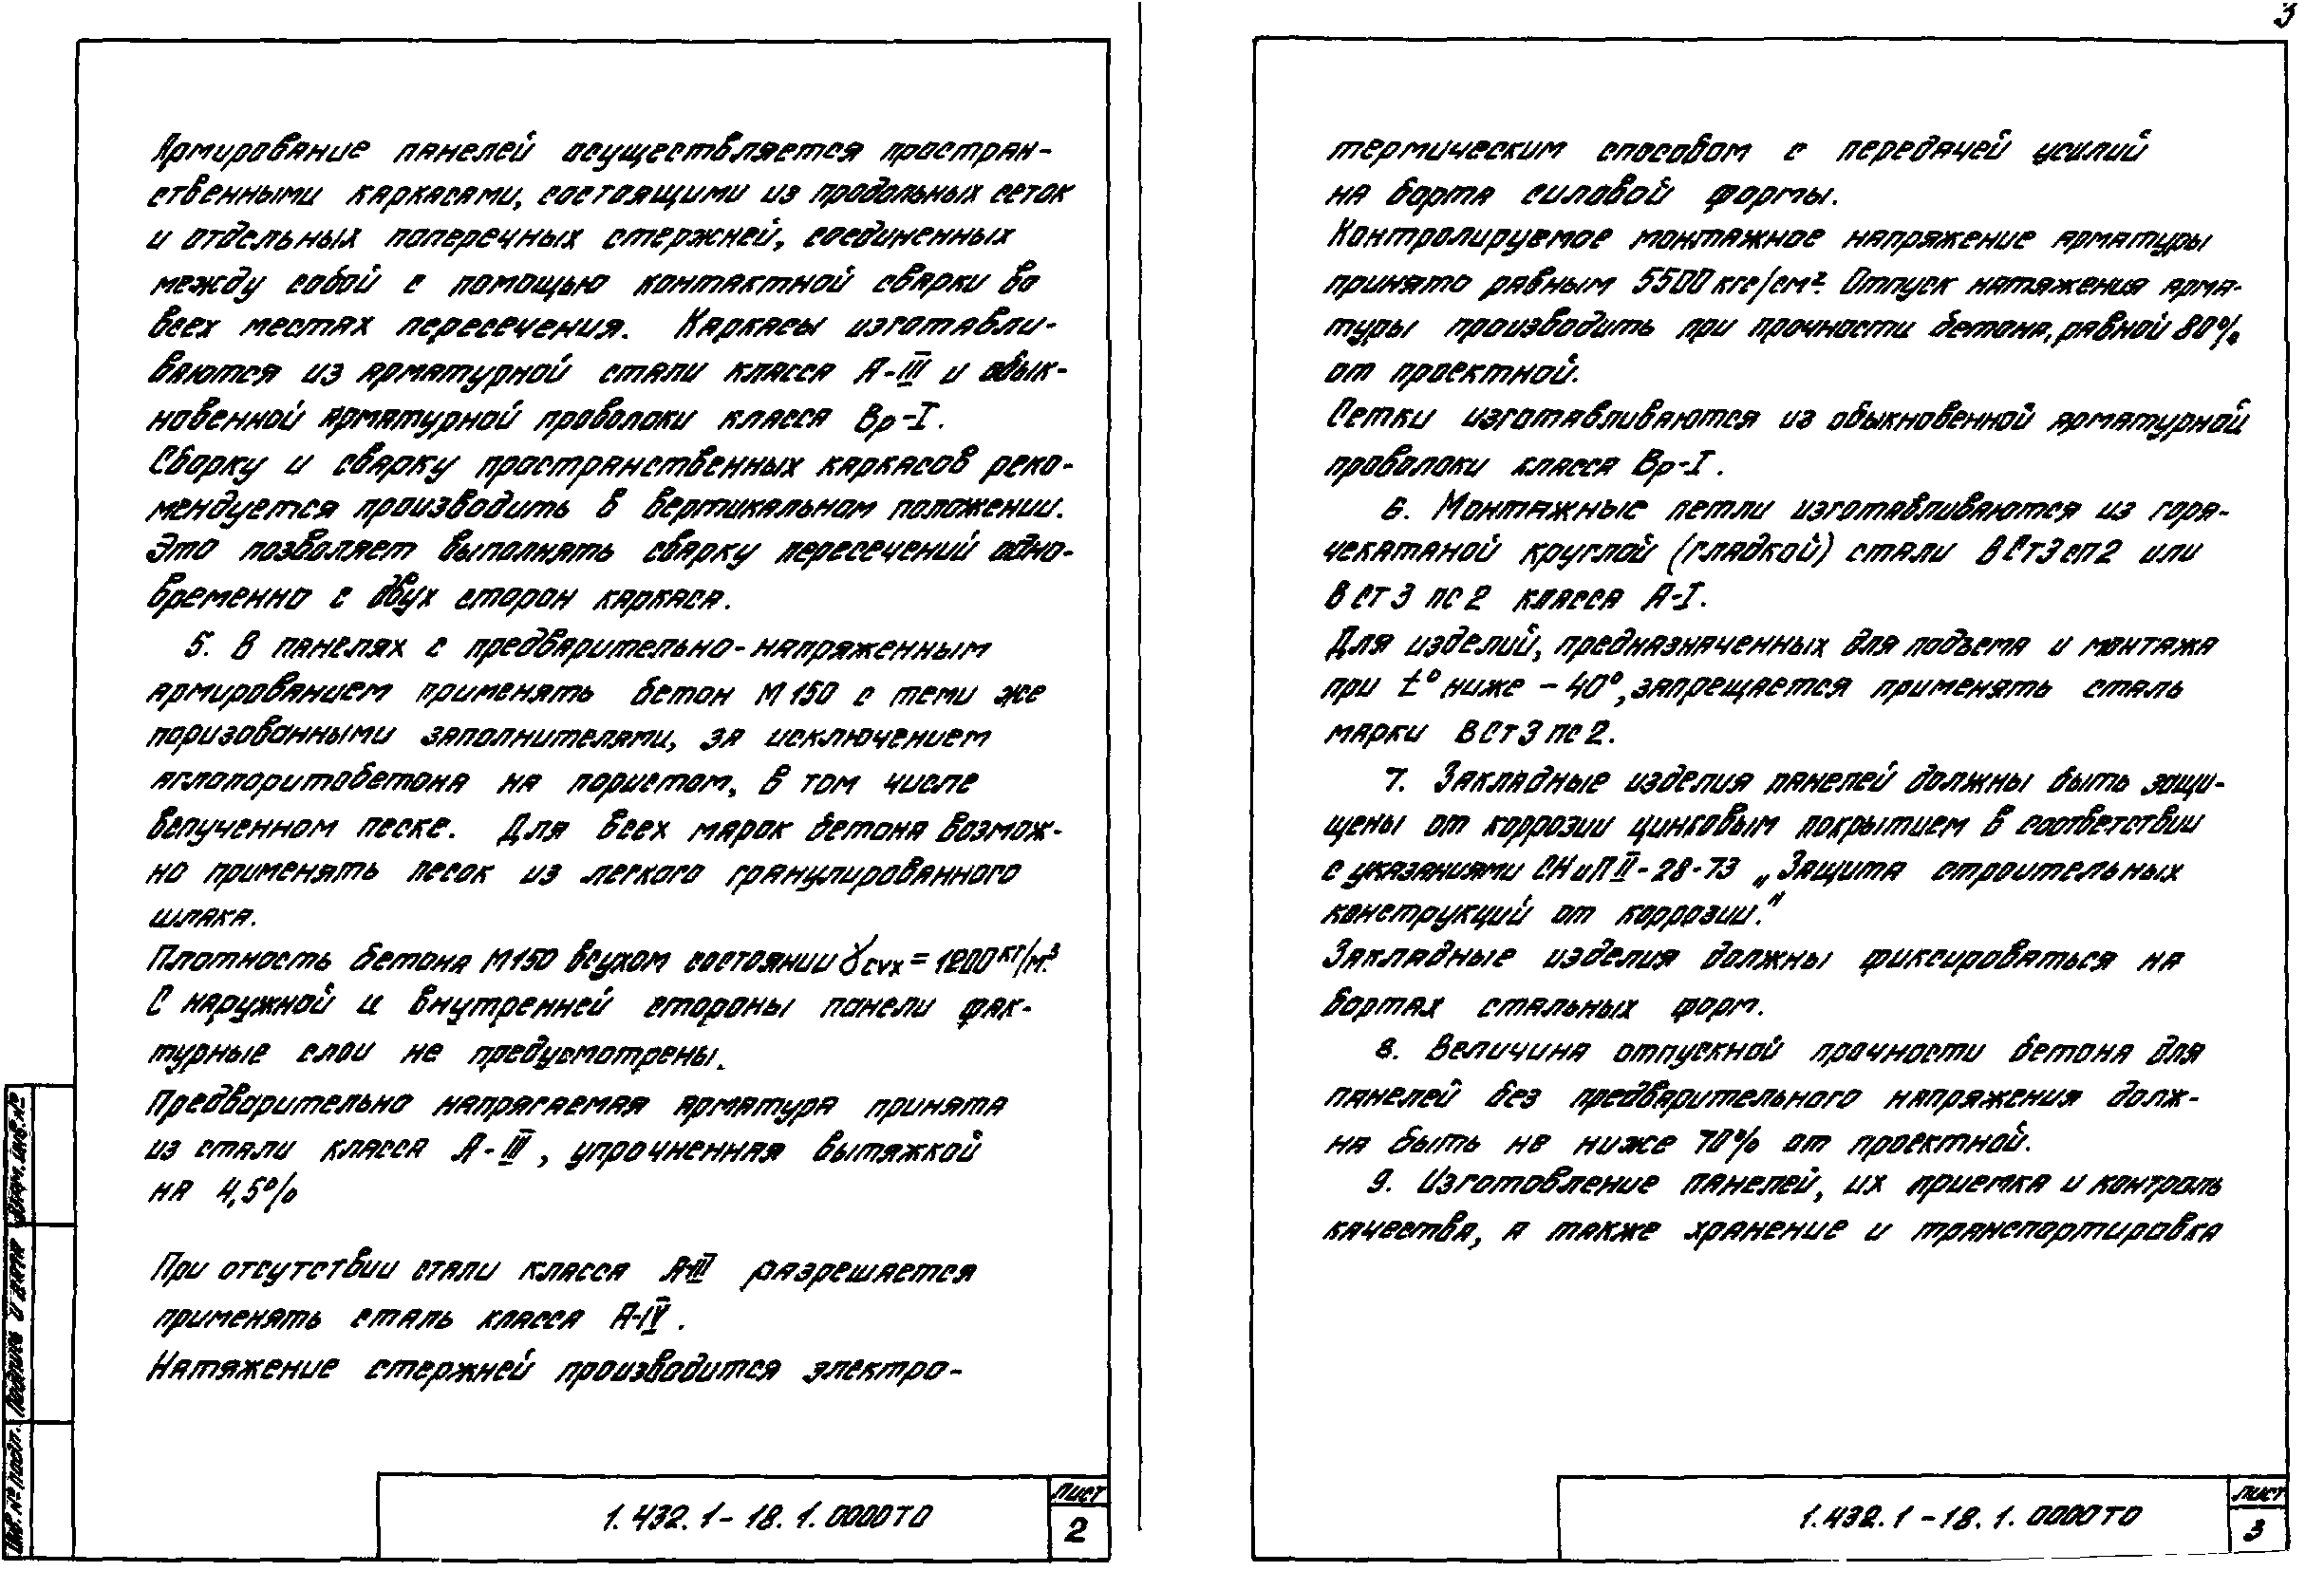 Армирование панелей осуществляется простран-
ственными каркасами, состоящими из продольных сеток
и отдельных поперечных стержней, соединенных
между собой с помощью контактной сварки во
всех местах пересечения. Каркасы изготавли-
ваются из арматурной стали класса А-III и обык-
новенной арматурной проволоки класса Вр-I.
Сборку и сварку пространственных каркасов реко-
мендуется производить в вертикальном положении.
Это позволяет выполнять сварку пересечений одно-
временно с двух сторон каркаса.
5. В панелях с предварительно-напряженным
армированием применять бетон М 150 с теми же
поризованными заполнителями, за исключением
аглопоритобетона на пористом, в том числе
вспученном песке. Для всех марок бетона возмож-
но применять песок из легкого гранулированного
шлака.
Плотность бетона М150 в сухом состоянии γсух = 1200 кг/м.³
С наружной и внутренней стороны панели фак-
турные слои не предусмотрены.
Предварительно напрягаемая арматура принята
из стали класса А-III, упрочненная вытяжкой
на 4,5%
При отсутствии стали класса А-III разрешается
применять сталь класса А-IV.
Натяжение стержней производится электро-
1.432.1-18.1.0000ТО
Лист
2
Инв.№подл.
Подпись и дата
Взам.инв.№
3
термическим способом с передачей усилий
на борта силовой формы.
Контролируемое монтажное напряжение арматуры
принято равным 5500 кгс/см². Отпуск натяжения арма-
туры производить при прочности бетона, равной 80%
от проектной.
Сетки изготавливаются из обыкновенной арматурной
проволоки класса Вр-I.
6. Монтажные петли изготавливаются из горя-
чекатаной круглой (гладкой) стали ВСт3сп2 или
ВСт3пс2 класса А-I.
Для изделий, предназначенных для подъема и монтажа
при t° ниже -40°, запрещается применять сталь
марки ВСт3пс2.
7. Закладные изделия панелей должны быть защи-
щены от коррозии цинковым покрытием в соответствии
с указаниями СНиП II-28-73 „Защита строительных
конструкций от коррозии."
Закладные изделия должны фиксироваться на
бортах стальных форм.
8. Величина отпускной прочности бетона для
панелей без предварительного напряжения долж-
на быть не ниже 70% от проектной.
9. Изготовление панелей, их приемка и контроль
качества, а также хранение и транспортировка
1.432.1-18.1.0000ТО
Лист
3